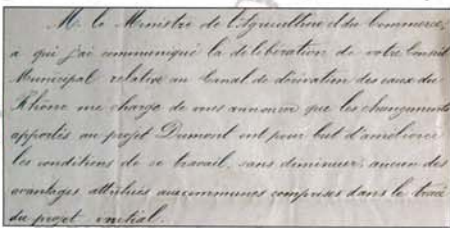 M. le Ministre de l'Agriculture et du Commerce,
a qui j'ai communiqué la délibération de votre Conseil
Municipal relative au Canal de dérivation des eaux du
Rhône me charge de vous annoncer que les changements
apportés au projet Dumont ont pour but d'améliorer
les conditions de ce travail, sans diminuer, aucun des
avantages attribués aux communes comprises dans le tracé
du projet initial.